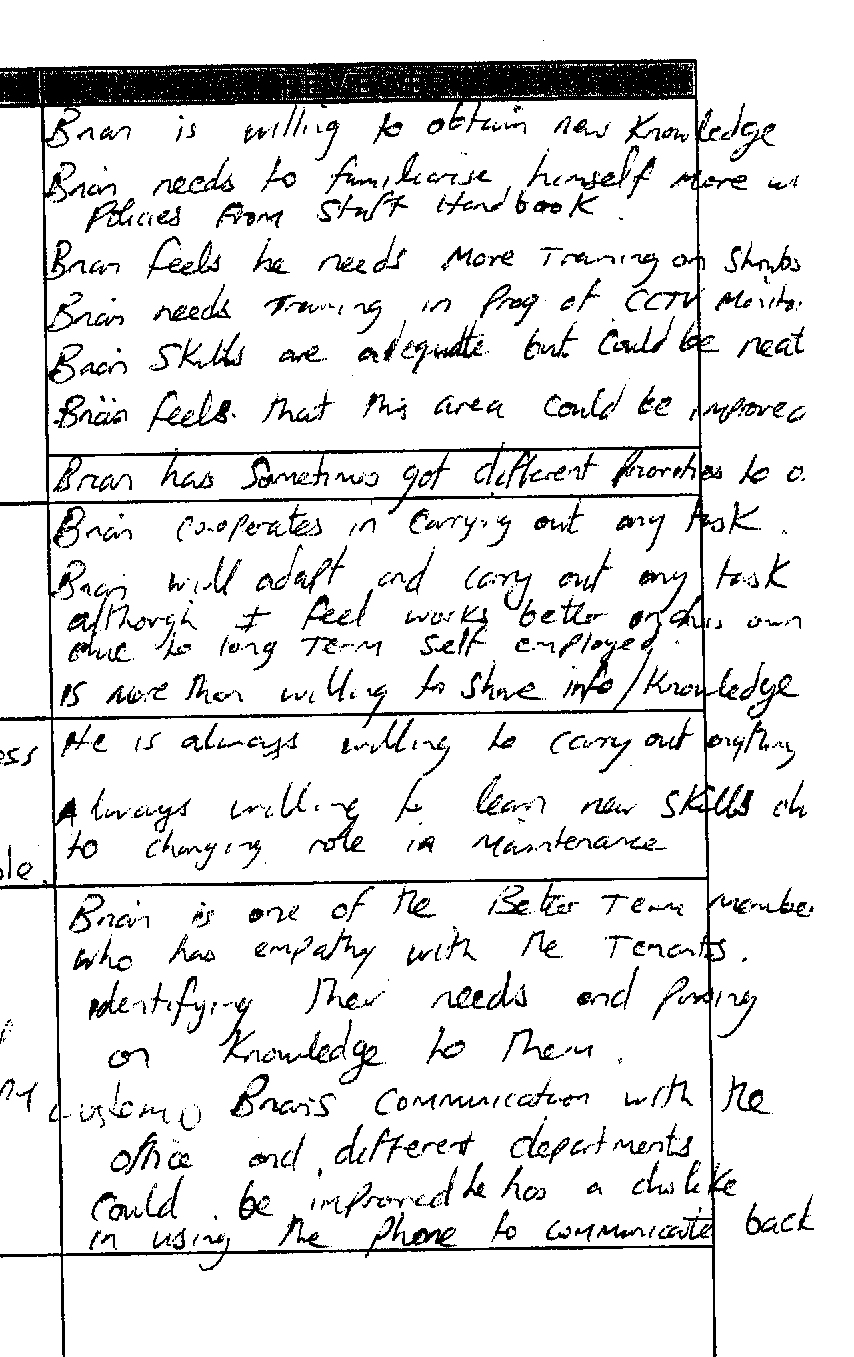 Brian is willing to obtain new Knowledge
Brian needs to familiarise himself more
Policies From Staff Handbook.
Brian feels he needs More Training on
Brian needs Training in Prog of CCTV
Brian Skills are adequate but Could be neat
Brian feels that this area Could be improved
Brian has Sometimes got different Priorities to
Brian co-operates in Carrying out any task.
Brian will adapt and carry out any task
although I feel works better on his own
due to long Term Self employed.
is more than willing to Share info/Knowledge
ess He is always willing to carry out anything
Always willing to learn new Skills
to changing role in Maintenance
ole.
Brian is one of the Better Team member
who has empathy with the Tenants.
identifying their needs and passing
on Knowledge to them.
Brians Communication with the
office and different departments
Could be improved he has a dislike
in using the phone to communicate back